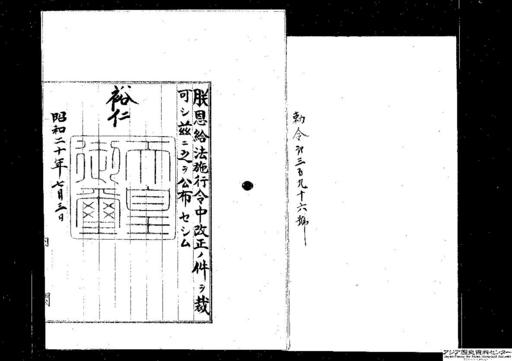 勅令第三百九十六號
朕恩給法施行令中改正ノ件ヲ裁
可シ茲ニ之ヲ公布セシム
裕仁
天皇御璽
昭和二十年七月三日
内閣
アジア歴史資料センター